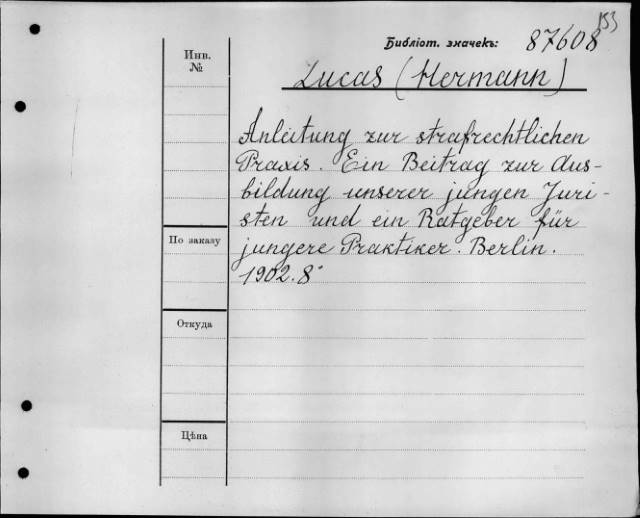 153
Библіот. значекъ: 87608
Инв.
№
Lucas (Hermann)
Anleitung zur strafrechtlichen
Praxis. Ein Beitrag zur Aus-
bildung unserer jungen Juri-
sten und ein Ratgeber für
jungere Praktiker. Berlin.
1902. 8°
По заказу
Откуда
Цѣна